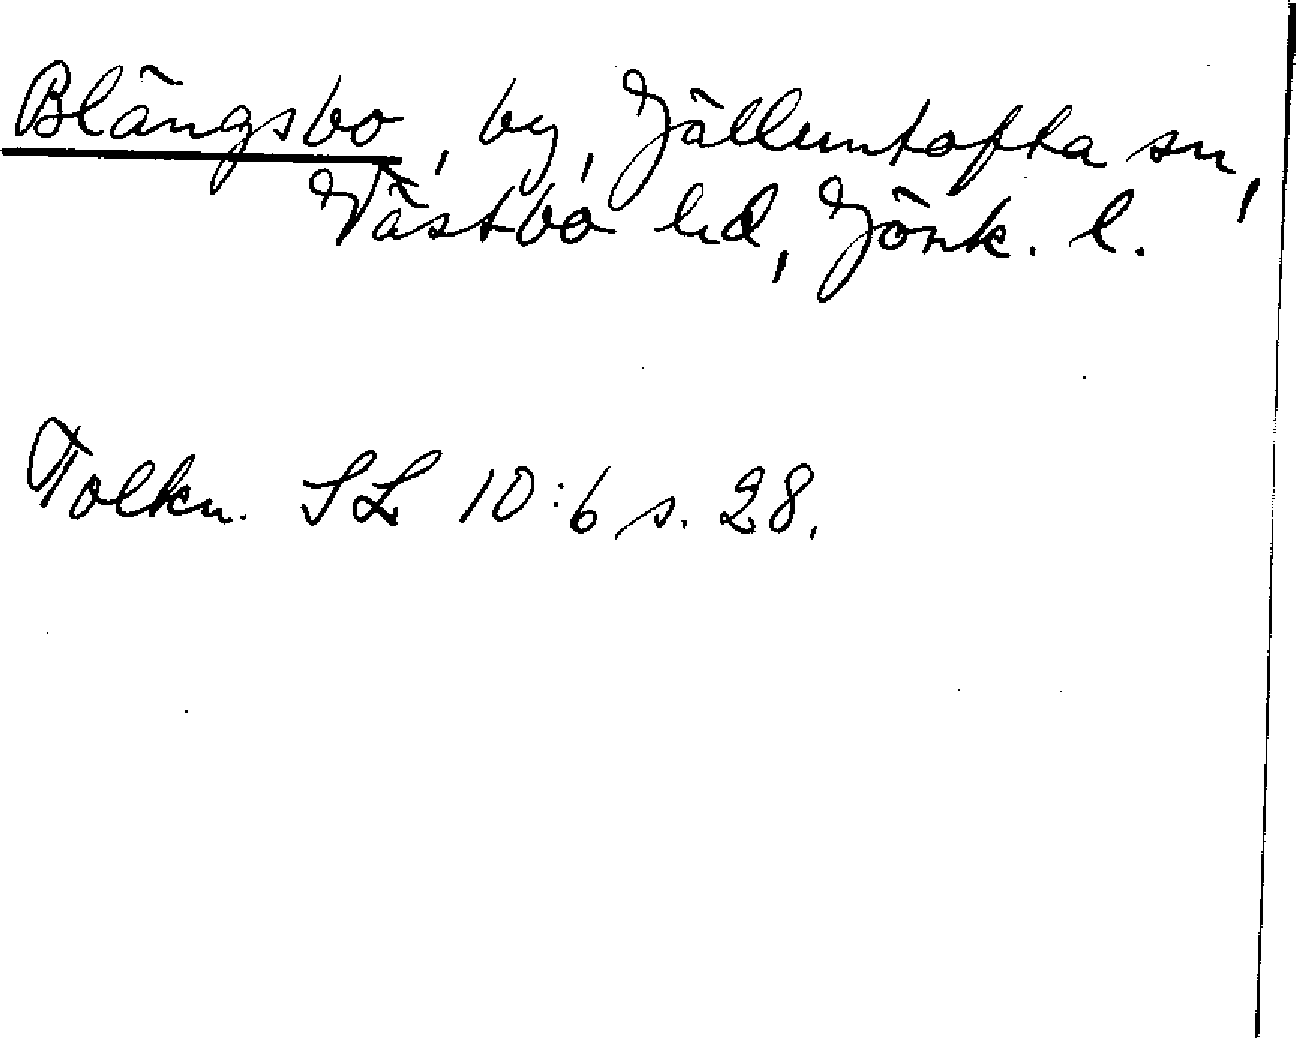 Blängsbo, by, Jälluntofta sn,
Västbo hd, Jönk. l.
Tolkn. SL 10:6 s. 28.